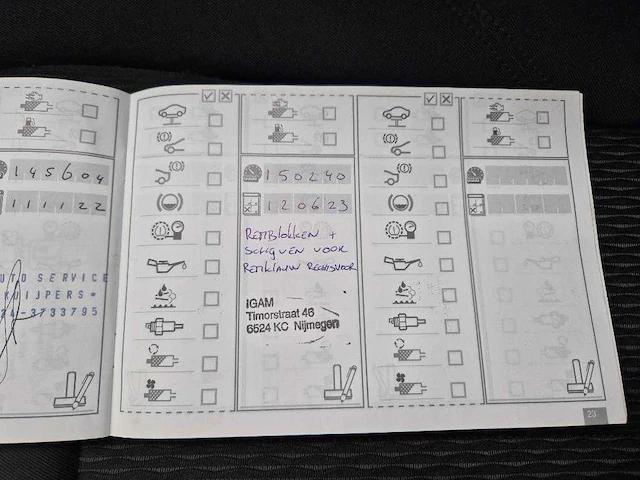 145604
111122
AUTO SERVICE
KUIJPERS
-3733795
150240
120623
REMBLOKKEN +
SCHIJVEN VOOR
REMKLAUW RECHTSVOOR
IGAM
Timorstraat 46
6524 KC Nijmegen
23